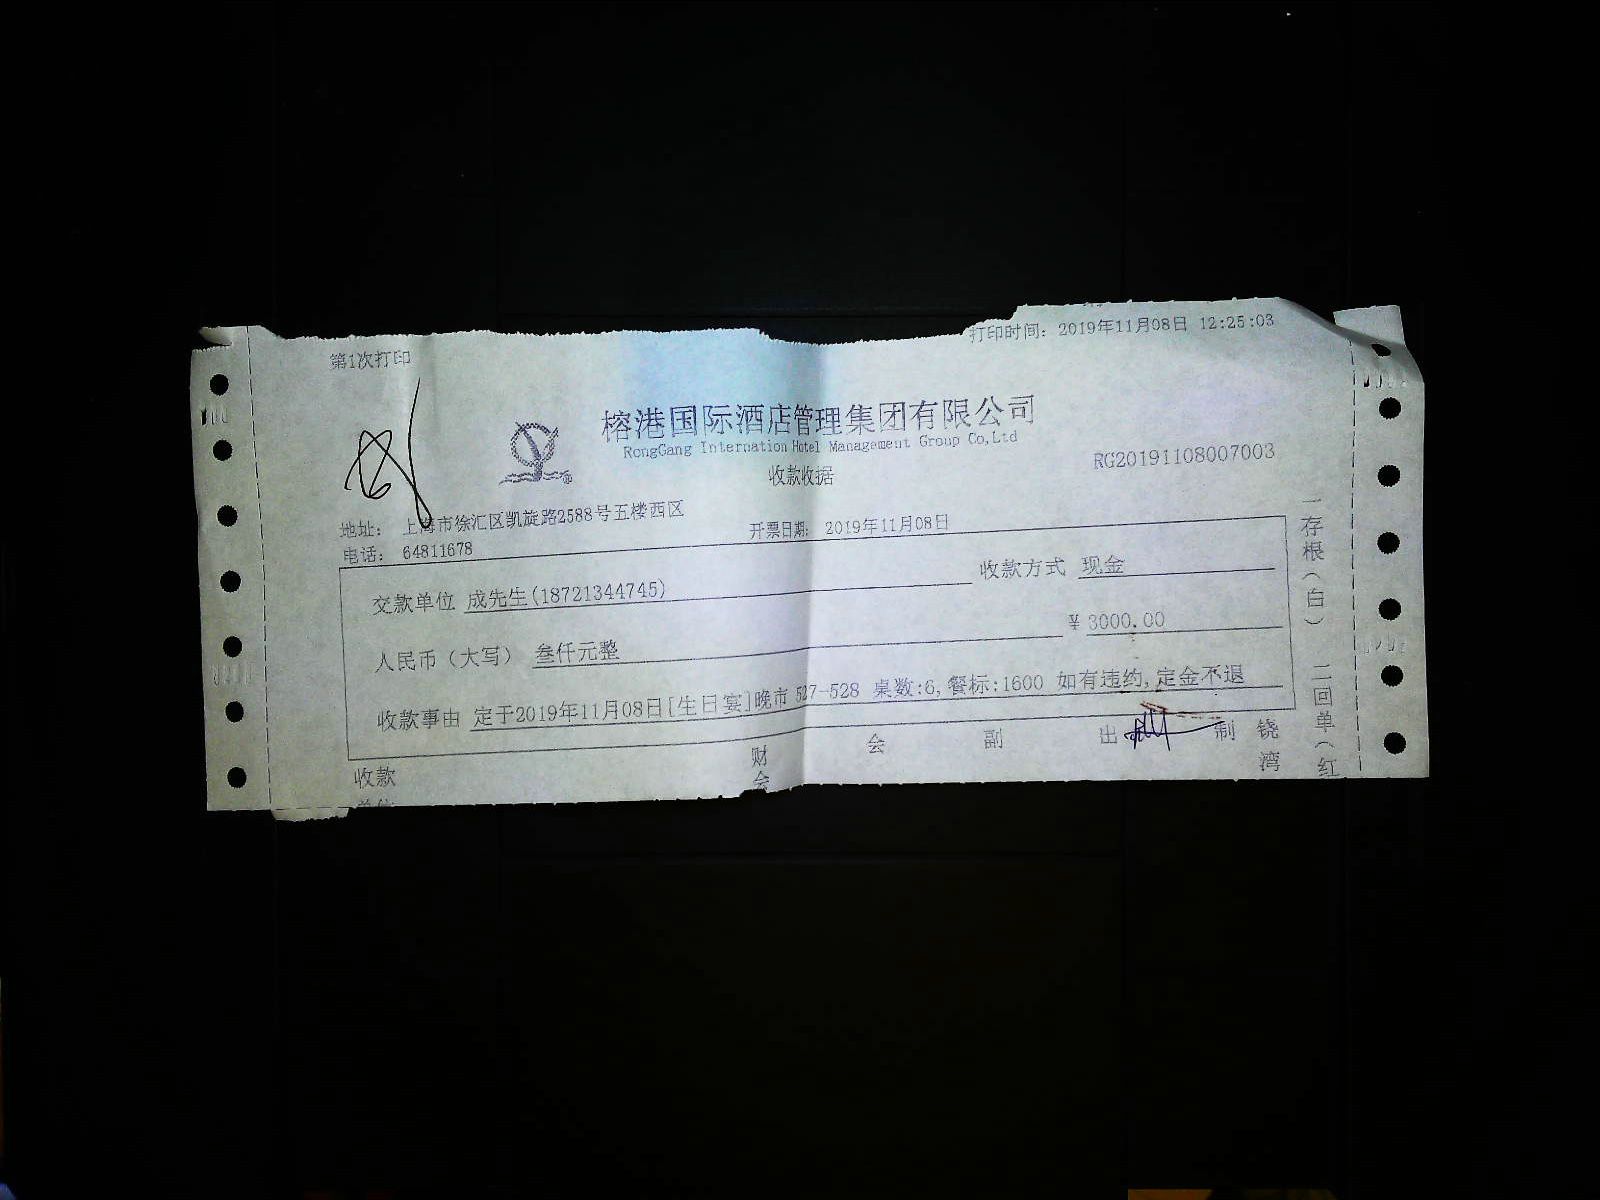 第1次打印
打印时间: 2019年11月08日 12:25:03
榕港国际酒店管理集团有限公司
RongGang Internation Hotel Management Group Co,Ltd
收款收据
RG20191108007003
地址: 上海市徐汇区凯旋路2588号五楼西区
电话: 64811678
开票日期: 2019年11月08日
交款单位 成先生(18721344745)
收款方式 现金
人民币（大写） 叁仟元整
¥ 3000.00
收款事由 定于2019年11月08日[生日宴]晚市 527-528 桌数:6,餐标:1600 如有违约,定金不退
收款
财会
会
副
出
制
铙湾
一存根（白） 二回单（红